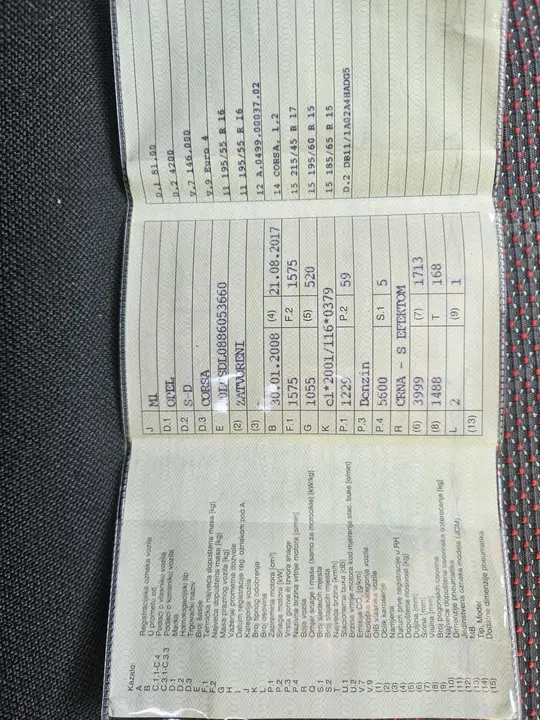 Kazalo:
A Registarska oznaka vozila
B U prometu od
C.1.1-C.4 Podaci o vlasniku vozila
Marka
Trgovački naziv
F.1 Tehnička najveća dopuštena masa [kg]
F.2 Najveća dopuštena masa [kg]
G Masa praznog vozila [kg]
H Važenje prometne dozvole
I Datum registracije reg. oznakom pod A
J Kategorija vozila
K Broj homologacije/odobrenja
L Broj osovina
P.1 Zapremnina motora [cm³]
P.2 Snaga motora [kW]
P.3 Vrsta goriva ili izvora snage
P.4 Nazivna brzina vrtnje motora [o/min]
R Boja vozila
Q Omjer snaga/masa (samo za motocikle) [kW/kg]
S.1 Broj sjedećih mjesta
S.2 Broj stajaćih mjesta
T Najveća brzina [km/h]
U.1 Stacionarna buka [dB]
U.2
V.7 Emisija CO₂ [g/km]
V.9
(1)
(2) Oblik karoserije
(3) Namjena
(4) Datum prve registracije u RH
(5) Dopuštena nosivost [kg]
(6) Dužina [mm]
(7) Širina [mm]
(8) Visina [mm]
(9) Broj pogonskih osovina
(10) Najveće dopušteno osovinsko opterećenje [kg]
(11) Dimenzije pneumatika
(12) Jedinstvena oznaka modela (JOM)
(13) MB
(14) Tip, Model
(15) Dodatne dimenzije pneumatika
J M1
D.1 OPEL
D.2 S-D
D.3 CORSA
E
(2) ZATVORENI
(3)
B 30.01.2008 (4) 21.08.2017
F.1 1575 F.2 1575
G 1055 (5) 520
K e1*2001/116*0379
P.1 1229 P.2 59
P.3 Benzin
P.4 5600 S.1 5
R CRNA - S EFEKTOM
(6) 3999 (7) 1713
(8) 1488 T 168
L 2 (9) 1
(13)
U.1 81,00
U.2 4200
V.7 146,000
V.9 Euro 4
11 195/55 R 16
11 195/55 R 16
12 A.0499.00037.02
14 CORSA, 1,2
15 215/45 R 17
15 195/60 R 15
15 185/65 R 15
D.2 DB11/1A02A4HADG5